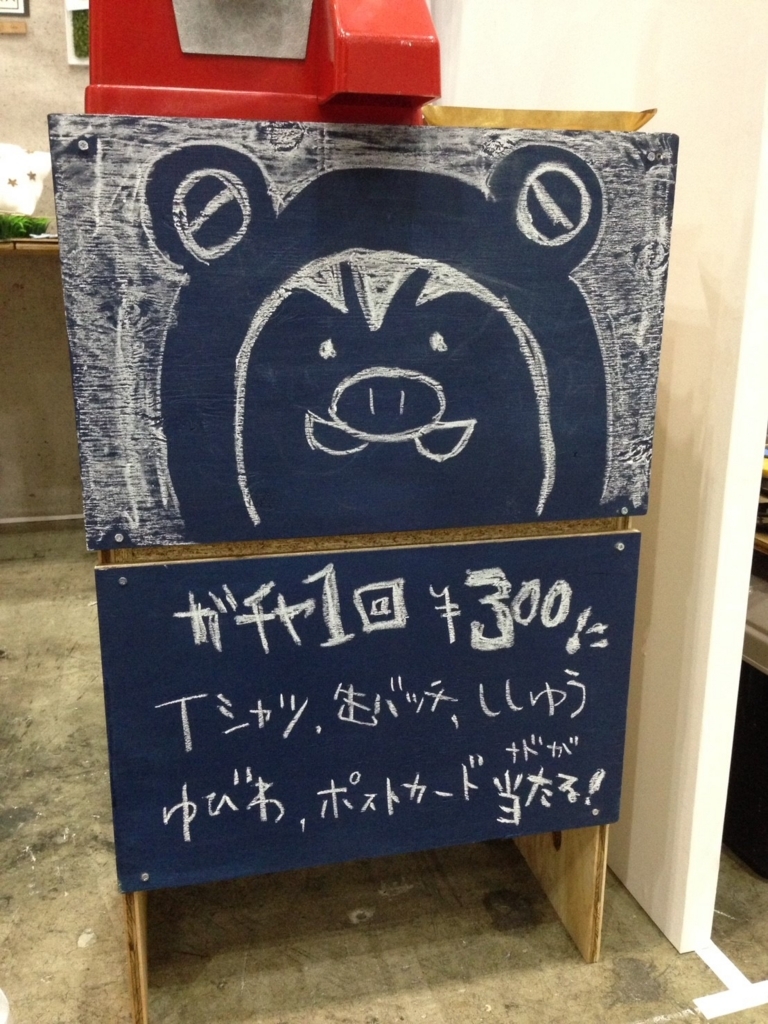 ガチャ1回 ¥300!に
Tシャツ、缶バッチ、ししゅう
ゆびわ、ポストカード ナドが当たる!